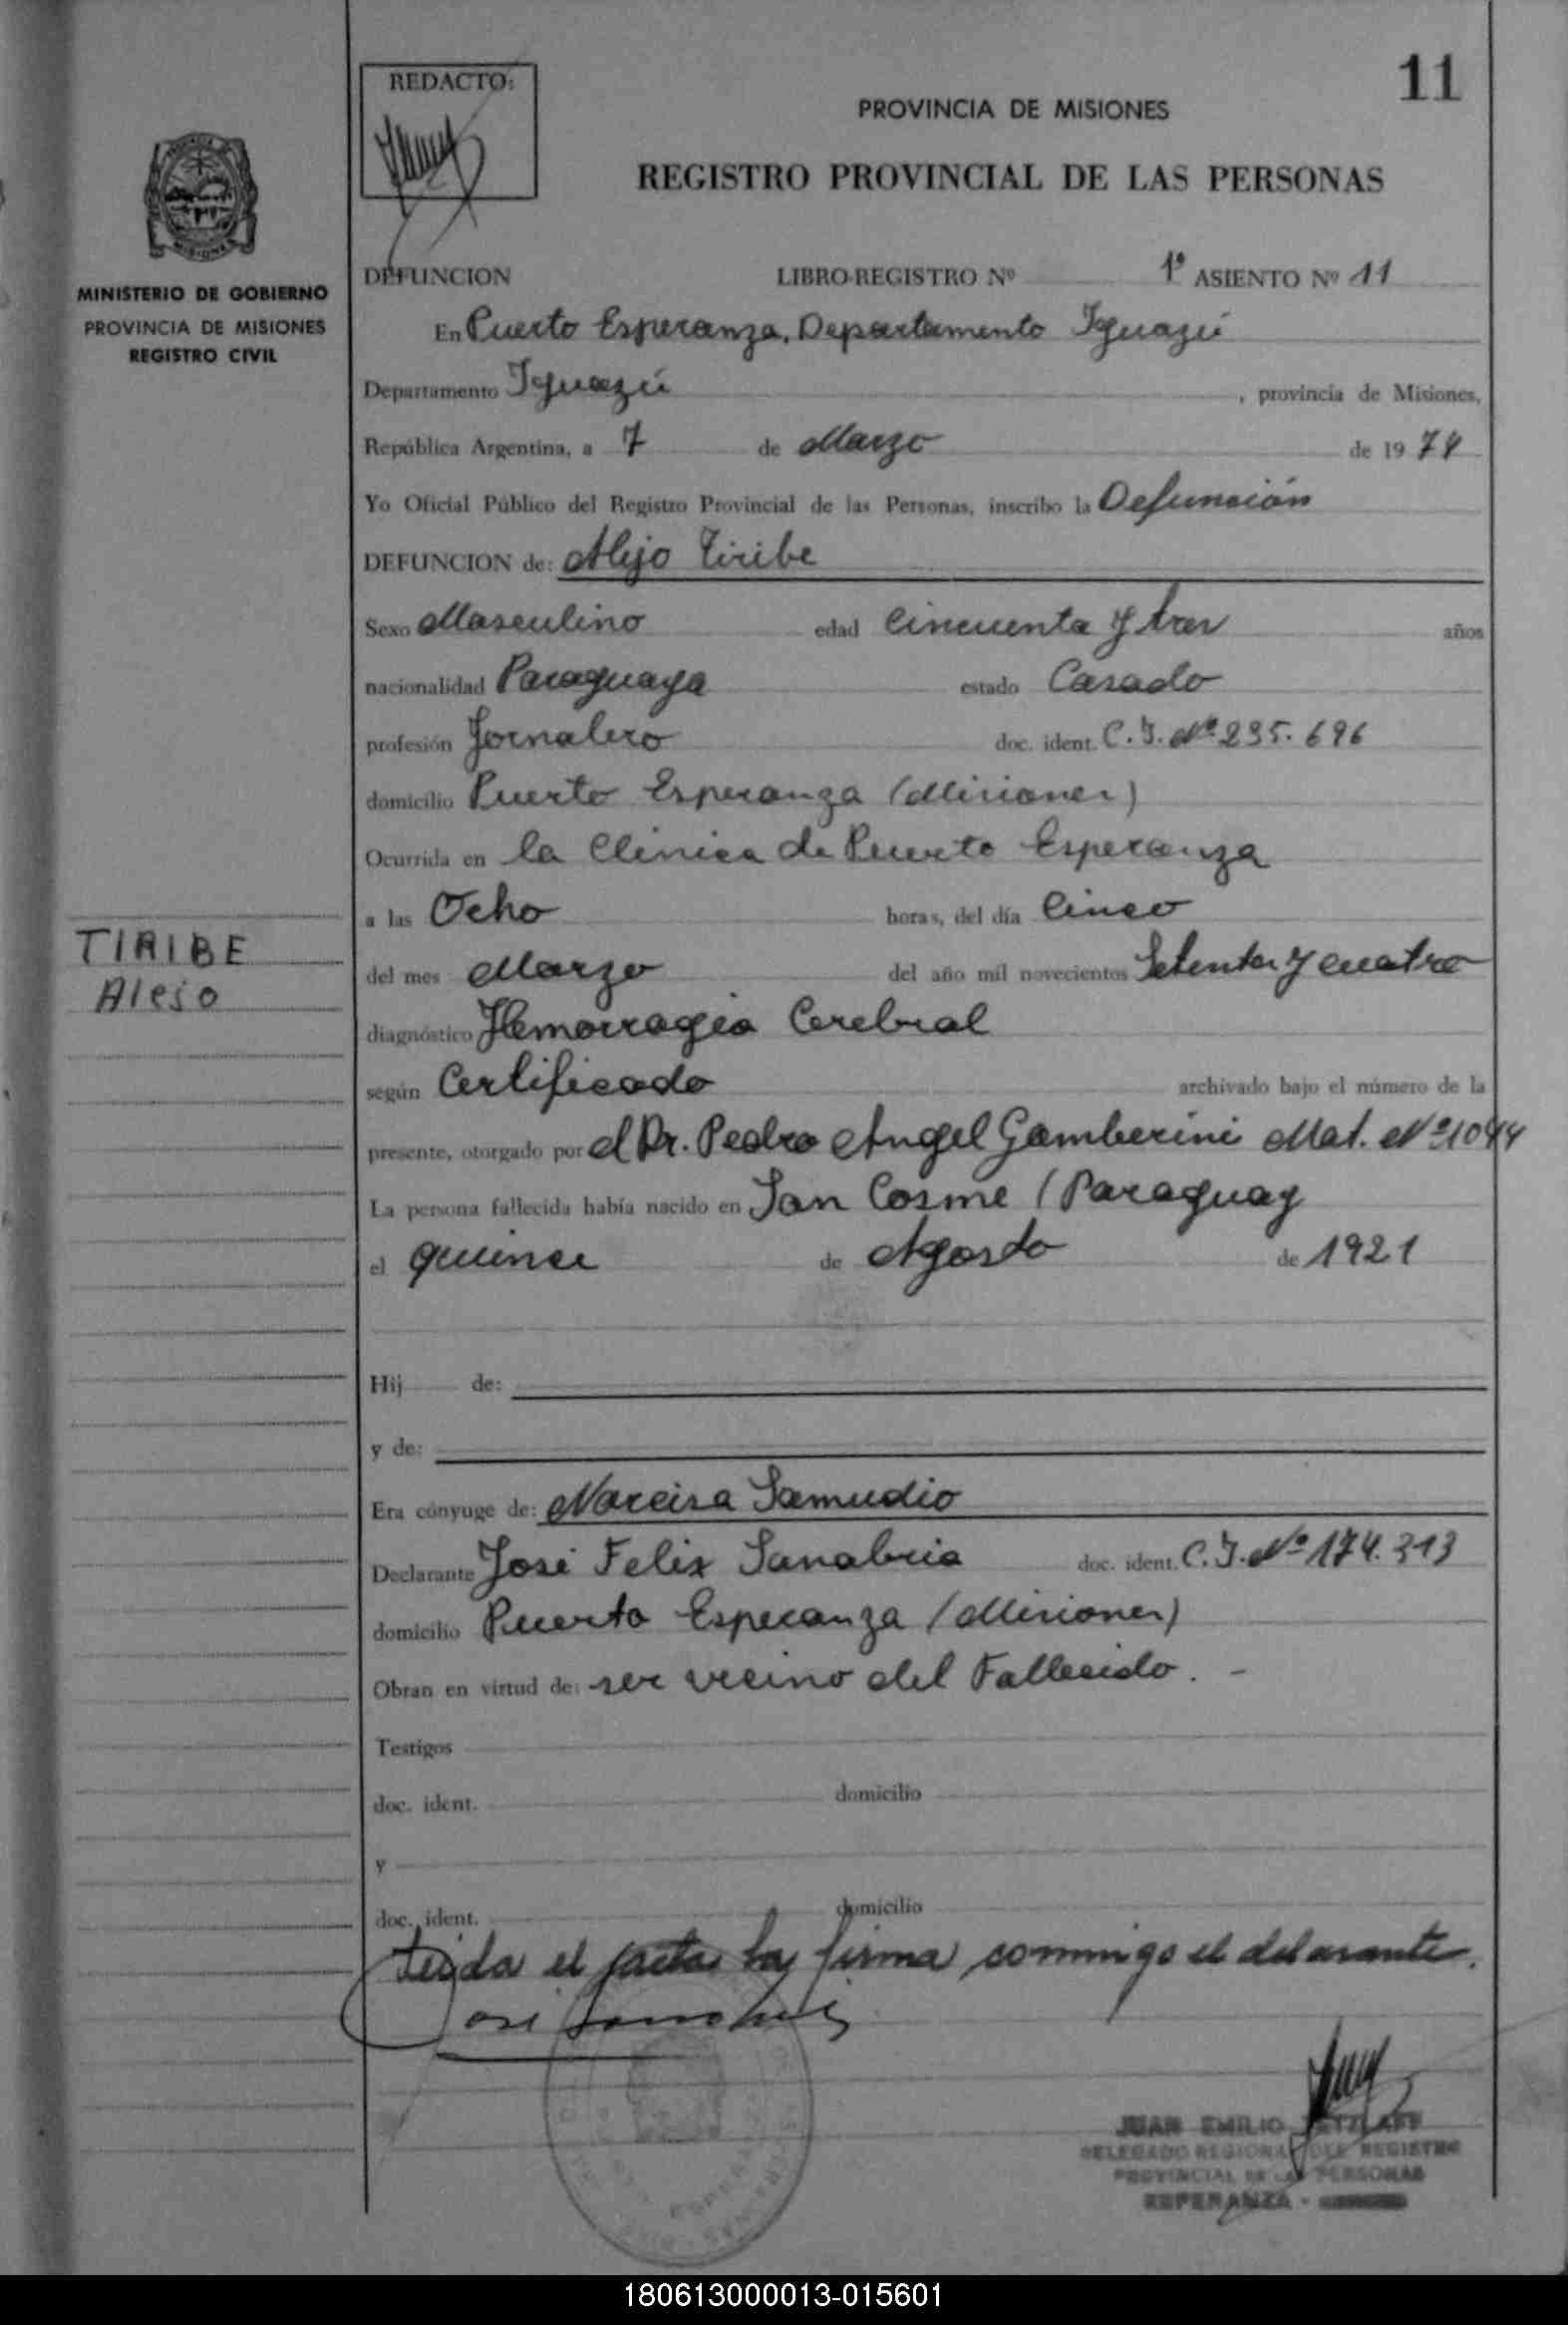 11
REDACTO:
PROVINCIA DE MISIONES
REGISTRO PROVINCIAL DE LAS PERSONAS
MISIONES
MINISTERIO DE GOBIERNO
PROVINCIA DE MISIONES
REGISTRO CIVIL
DEFUNCION LIBRO-REGISTRO Nº 1º ASIENTO Nº 11
En Puerto Esperanza, Departamento Iguazú
Departamento Iguazú , provincia de Misiones,
República Argentina, a 7 de Marzo de 1974
Yo Oficial Público del Registro Provincial de las Personas, inscribo la Defunción
DEFUNCION de: Alejo Tiribe
Sexo Masculino edad Cincuenta y tres años
nacionalidad Paraguaya estado Casado
profesión Jornalero doc. ident. C.I. Nº 235.696
domicilio Puerto Esperanza (Misiones)
Ocurrida en la Clinica de Puerto Esperanza
a las Ocho horas, del día Cinco
TIRIBE
Alejo
del mes Marzo del año mil novecientos Setenta y cuatro
diagnóstico Hemorragia Cerebral
según Certificado archivado bajo el número de la
presente, otorgado por el Dr. Pedro Angel Gamberini Mat. Nº 1044
La persona fallecida había nacido en San Cosme (Paraguay
el quince de Agosto de 1921
Hij de:
y de:
Era cónyuge de: Narcisa Samudio
Declarante José Felix Sanabria doc. ident. C.I. Nº 174.313
domicilio Puerto Esperanza (Misiones)
Obran en virtud de: ser vecino del Fallecido. -
Testigos
doc. ident. domicilio
y
doc. ident. domicilio
Leida el acta la firma conmigo el declarante.
José Sanabria
JUAN EMILIO
DELEGADO REGIONAL DEL REGISTRO
PROVINCIAL DE LAS PERSONAS
ESPERANZA -
180613000013-015601